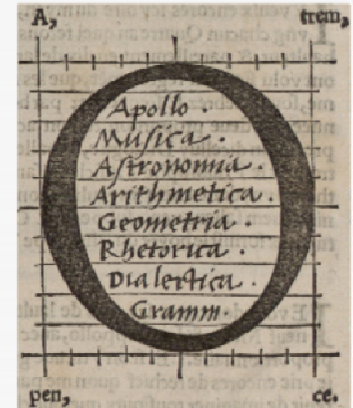 A, trem,
Apollo.
Musica.
Astronomia.
Arithmetica.
Geometria.
Rhetorica.
Dialectica.
Gramm.
pen, ce.